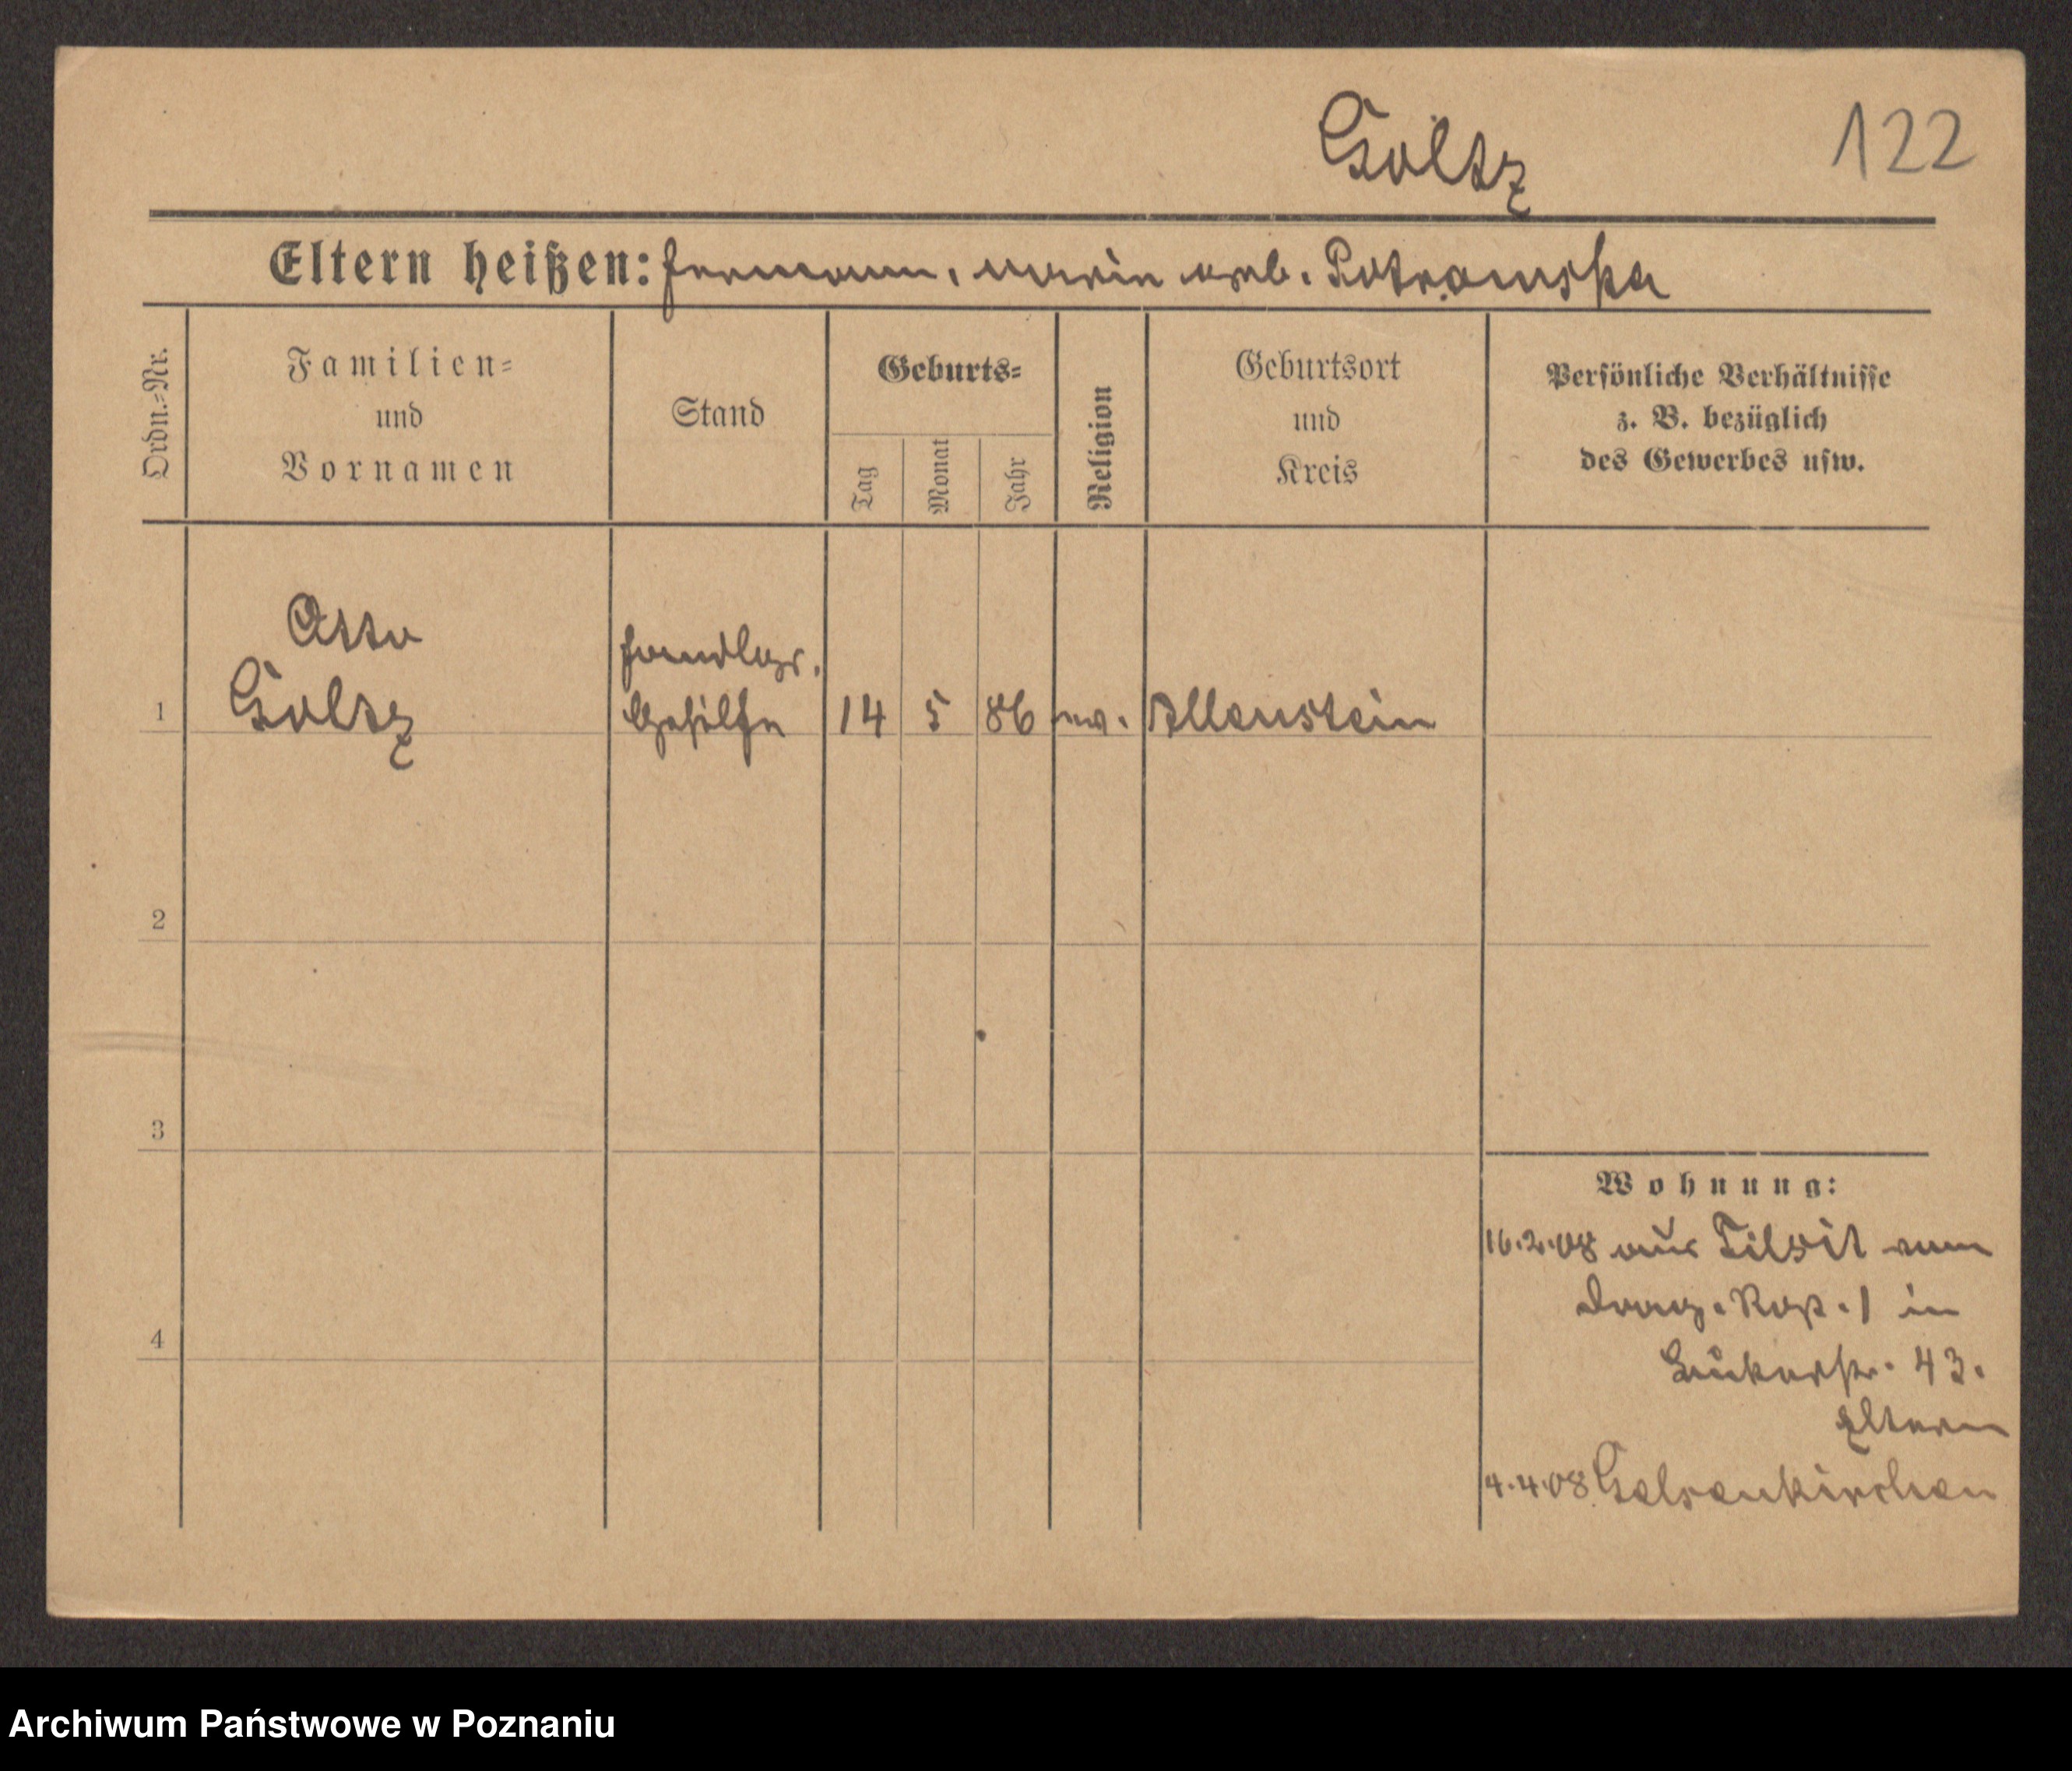 Goltz
122
Eltern heißen: Hermann, Marie geb. Potramska
Ordn.-Nr.
Familien-
und
Vornamen
Stand
Geburts-
Tag
Monat
Jahr
Religion
Geburtsort
und
Kreis
Persönliche Verhältnisse
z. B. bezüglich
des Gewerbes usw.
Otto
Goltz
Handlgs.
Gehilfe
1
14
5
86
ev.
Allenstein
2
3
4
Wohnung:
16.2.08 aus Tilsit vom
Drag. Rgt. 1 in
43.
Eltern
4.4.08 Gelsenkirchen
Archiwum Państwowe w Poznaniu